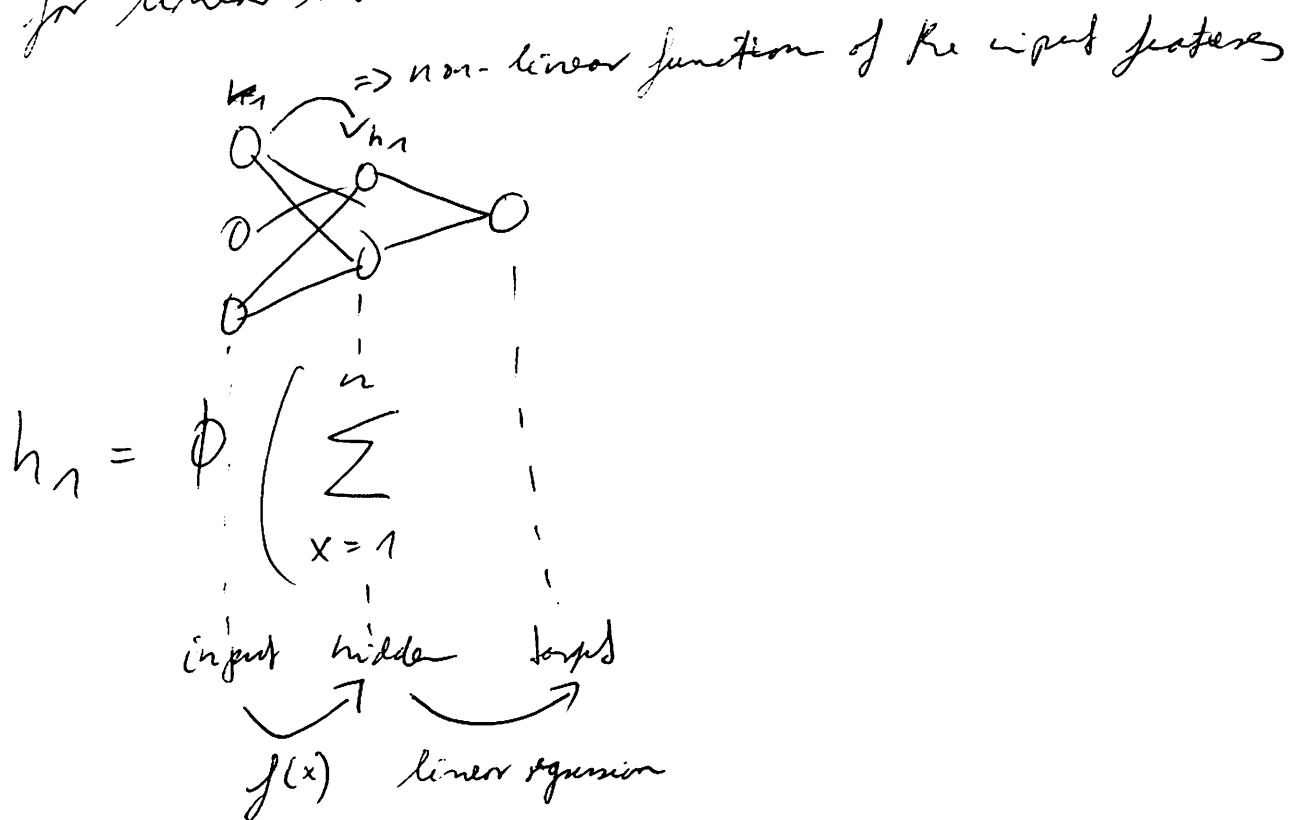 for linear
=> non-linear function of the input features
h1
h1 = ϕ ( n
∑
x = 1
input hidden target
f(x) linear regression